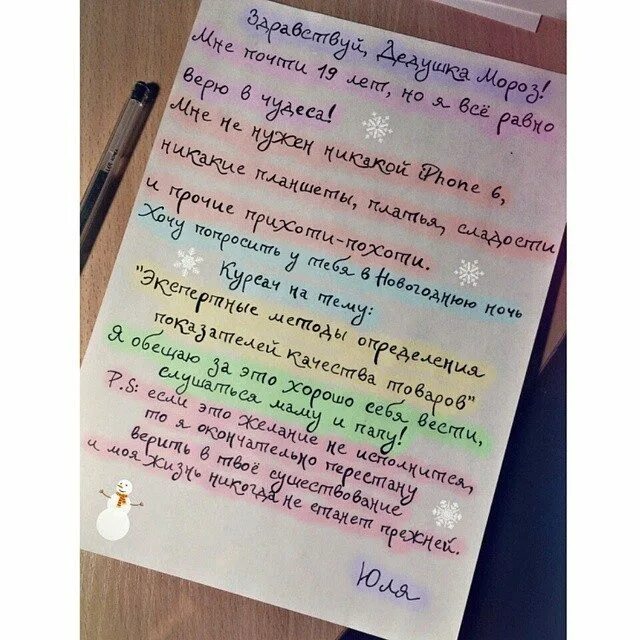 Здравствуй, Дедушка Мороз!
Мне почти 19 лет, но я всё равно
верю в чудеса!
Мне не нужен никакой iPhone 6,
никакие планшеты, платья, сладости
и прочие прихоти-похоти.
Хочу попросить у тебя в Новогоднюю ночь
Курсач на тему:
"Экспертные методы определения
показателей качества товаров"
Я обещаю за это хорошо себя вести,
слушаться маму и папу!
P.S: если это желание не исполнится,
то я окончательно перестану
верить в твоё существование
и моя жизнь никогда не станет прежней.
Юля